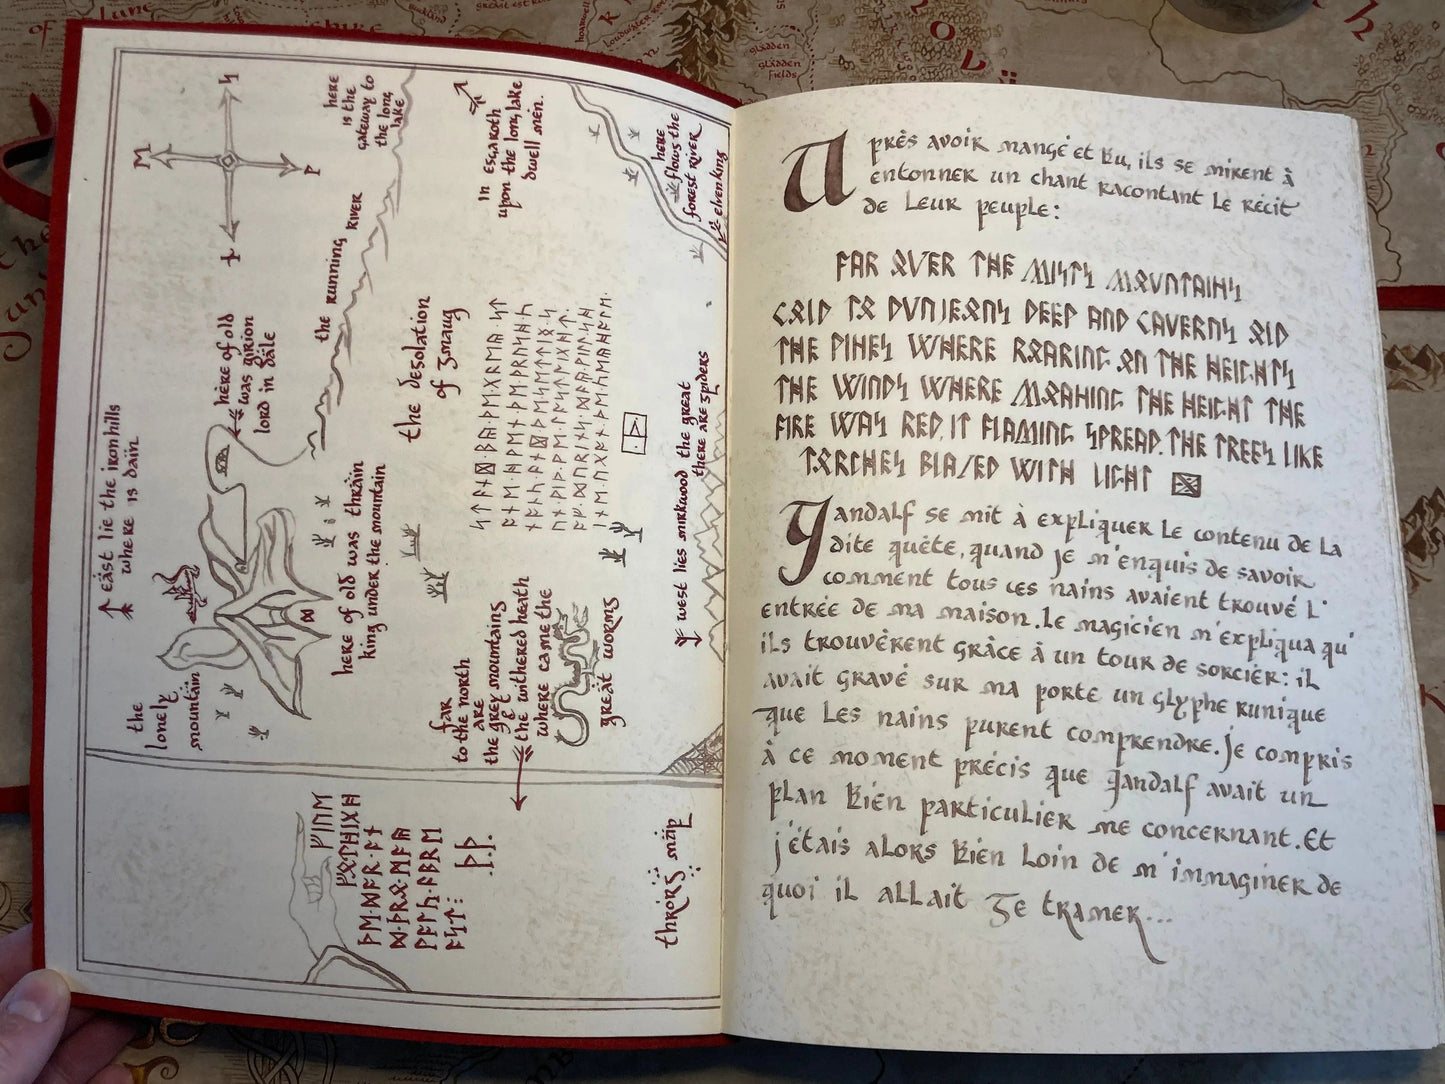 the
lonely
mountain
east lie the ironhills
where is dain
here of old
was girion
lord in dale
here of old was thrain
king under the mountain
the running river
here
is the
gateway to
the long
lake
far
to the north
are
the grey mountains
&
the withered heath
where came the
great worms
the desolation
of smaug
in esgaroth
upon the long lake
dwell men.
west lies mirkwood the great
there are spiders
here
flows the
forest river
elvenking
thrors map
Après avoir mangé et bu, ils se mirent à
entonner un chant racontant le récit
de leur peuple :
FAR OVER THE MISTY MOUNTAINS
COLD TO DUNGEONS DEEP AND CAVERNS OLD
THE PINES WHERE ROARING ON THE HEIGHTS
THE WINDS WHERE MOANING THE HEIGHT THE
FIRE WAS RED, IT FLAMING SPREAD. THE TREES LIKE
TORCHES BLAZED WITH LIGHT
Gandalf se mit à expliquer le contenu de la
dite quête, quand je m'enquis de savoir
comment tous ces nains avaient trouvé l'
entrée de ma maison. Le magicien m'expliqua qu'
ils trouvèrent grâce à un tour de sorcier : il
avait gravé sur ma porte un glyphe runique
que les nains purent comprendre. Je compris
à ce moment précis que Gandalf avait un
plan bien particulier me concernant. Et
j'étais alors bien loin de m'immaginer de
quoi il allait se tramer...